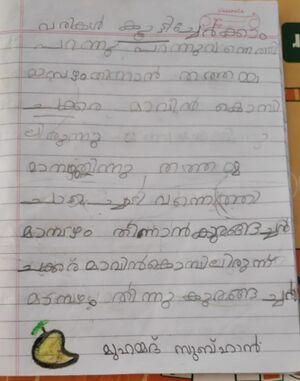 വരികൾ കൂട്ടിച്ചേർക്കാം
പറന്നു പറന്നുവന്നെത്തി
മാമ്പഴംതിന്നാൻ തത്തമ്മ
ചക്കര മാവിൻ കൊമ്പി
ലിരുന്നു
മാമ്പഴംതിന്നു തത്തമ്മ
ചാടി ച്ചാടി വന്നെത്തി
മാമ്പഴം തിന്നാൻ കുരങ്ങച്ചൻ
ചക്കര മാവിൻകൊമ്പിലിരുന്ന്
മാമ്പഴം തിന്നു കുരങ്ങ ച്ചൻ
മുഹമ്മദ് സുബ്ഹാൻ